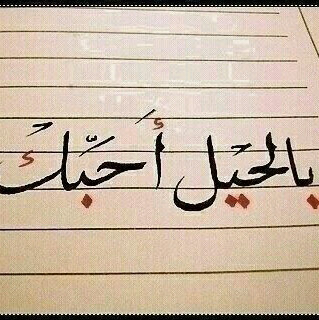 بالحيل أحبّك